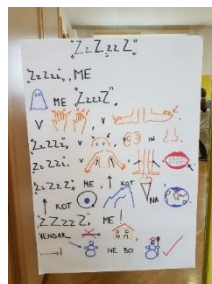 "ZzZzzZ"
"ZzZzZ", ME
ME "ZzzzZ",
V , V
ZzZZz, V , IN
ZzZZz, V ,
ZzZzZ, ME, KOT NA
KOT
ZZzzZ, ME !
VENDAR
NE BO